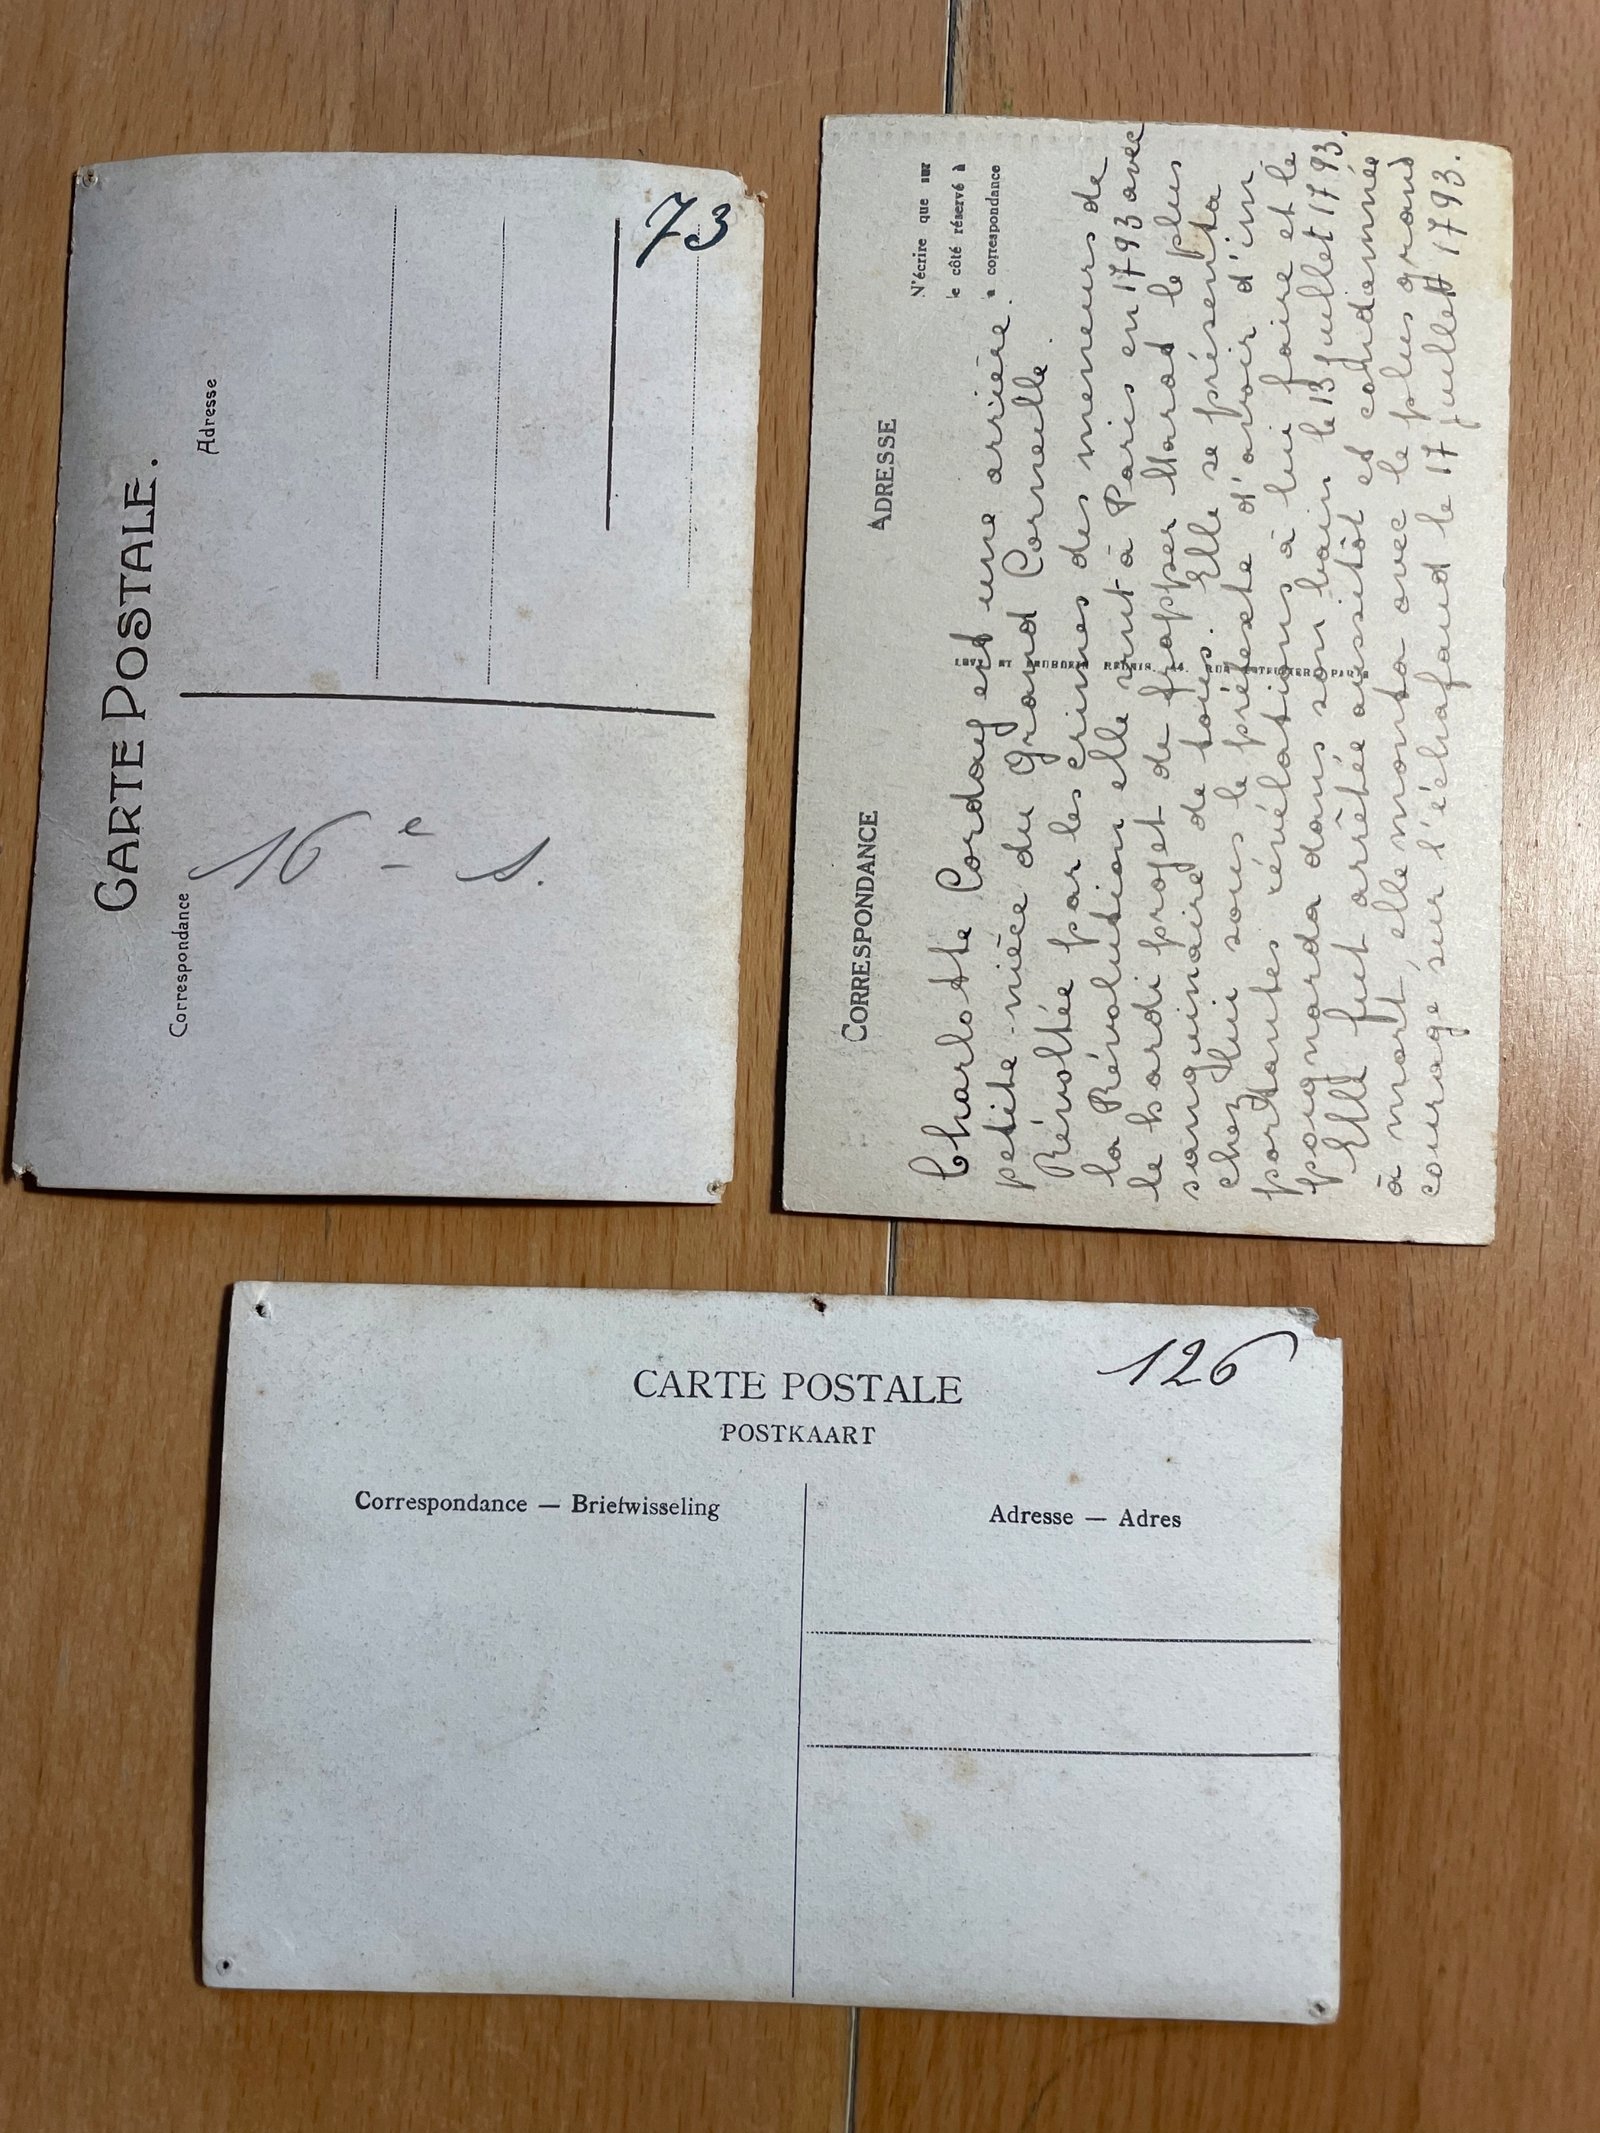 CARTE POSTALE.
Correspondance
Adresse
73
16e s.
CORRESPONDANCE
ADRESSE
N'écrire que sur
le côté réservé à
a correspondance
Charlotte Corday est une arrière
petite-nièce du Grand Corneille.
Révoltée par les crimes des meneurs de
la Révolution elle vint à Paris en 1793 avec
le hardi projet de frapper Marat le plus
sanguinaire de tous. Elle se présenta
chez lui sous le prétexte d'avoir d'im
portantes révélations à lui faire et le
poignarda dans son bain le 13 juillet 1793.
Elle fut arrêtée aussitôt et condamnée
à mort, elle monta avec le plus grand
courage sur l'échafaud le 17 juillet 1793.
REUNIS
RUE
PARIS
CARTE POSTALE
POSTKAART
126
Correspondance — Briefwisseling
Adresse — Adres